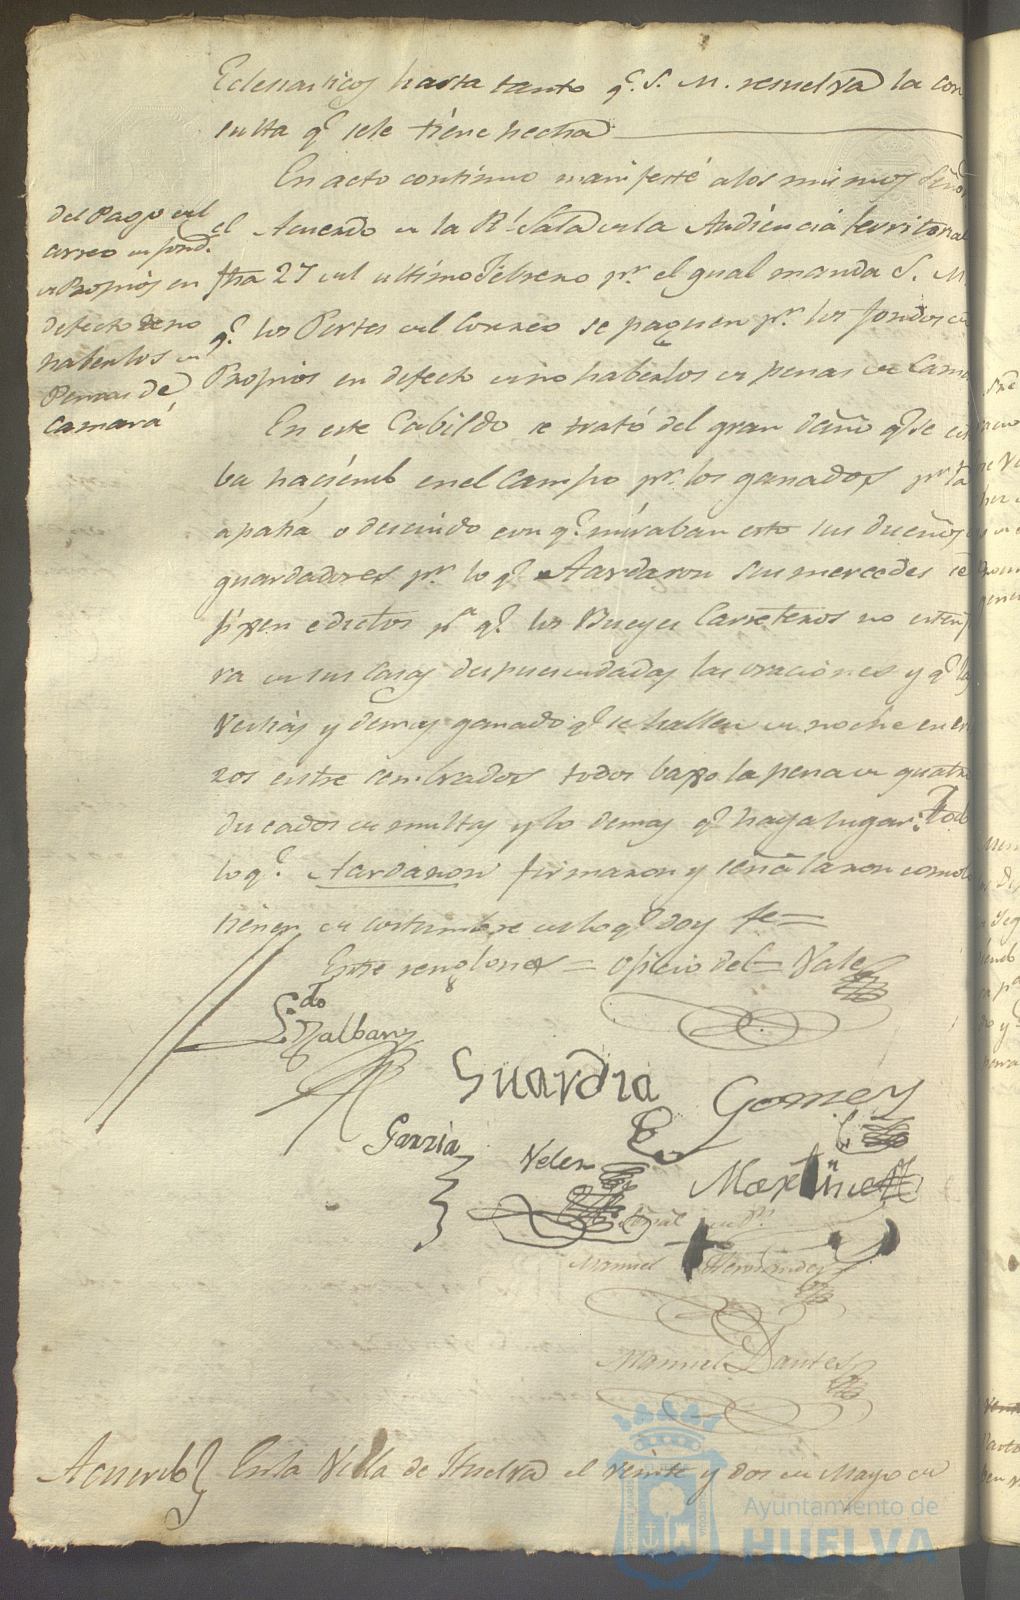 Eclesiasticos hasta tanto q.e S. M. resuelva la con
sulta q.e sele tiene hecha
En acto continuo manifesté alos mismos Seño
el Acuerdo de la R.l Sala de la Audiencia territorial
fha 27 del ultimo Febrero p.r el qual manda S. M.
q.e los Portes del Correo se paguen p.r los fondos de
Propios en defecto de no haberlos de penas de Cama
del Pago del
correo de fond.s
de Propios en
defecto de no
haberlos de
Penas de
Camará
En este Cabildo se trató del gran daño q.e se est
ba haciendo en el Campo p.r los ganados p.r la
apatia o descuido con q.e miraban esto sus dueños
guardadores p.r lo q.e Acordaron sus mercedes se
fixen edictos p.a q.e los Bueyes Carreteros no
ra de sus Casas despues de dadas las oraciones y q.e las
Vestias y demas ganado q.e se hallen de noche en
ros entre sembrados todos baxo la pena de quatro
ducados de multa y lo demas q.e haya lugar: Todo
lo q.e Acordaron firmaron y señalaron como
tienen de costumbre de lo q.e doy fe=
Entre renglones = oficio del = Vale
L.do Dalbany
Guardia
Gomez
Garzia
Velez
Martinez
Señal de D.n
Manuel Hernandez
Manuel Dantes
Acuerdo} En la Villa de Huelva el veinte y dos de Mayo de
Ayuntamiento de
HUELVA